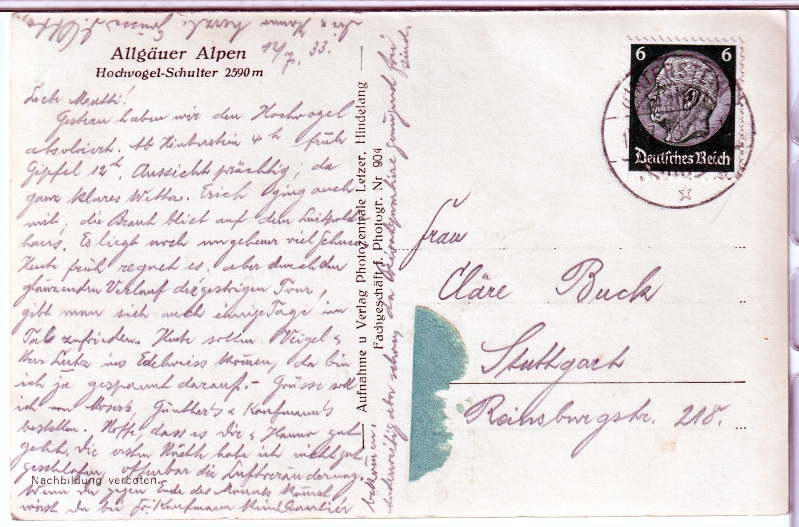 Allgäuer Alpen
Hochvogel-Schulter 2590 m
12/7. 33.
Liebe Mutti!
Gestern haben wir den Hochvogel
absolviert. Ab Hinterstein 4 h früh
Gipfel 12h. Aussicht prächtig, da
ganz klares Wetter. Erich ging auch
mit, die Braut blieb auf dem Luitpold
haus. Es liegt noch ungeheuer viel Schnee
Heute früh regnet es, aber durch den
glänzenden Verlauf der gestrigen Tour,
gibt man sich auch einige Tage im
Tale zufrieden. Heute sollen Weigel &
Herr Lutz ins Edelweiss kommen, da bin
ich ja gespannt darauf. - Grüsse soll
ich von Mosers, Günthers & Kaufmanns
bestellen. Hoffe, dass es Dir & Hanno gut
geht. Die ersten Nächte habe ich nicht gut
geschlafen, offenbar die Luftveränderung.
Wenn Du gegen Ende des Monats kommst,
wirst Du bei Fr. Kaufmann kein Quartier
bekommen,
Nachbildung verboten.
Aufnahme u Verlag Photozentrale Letzer, Hindelang
Fachgeschäft f. Photogr. Nr 904
6 6
Deutsches Reich
Frau
Cläre Buck
Stuttgart
Reinsburgstr. 218.